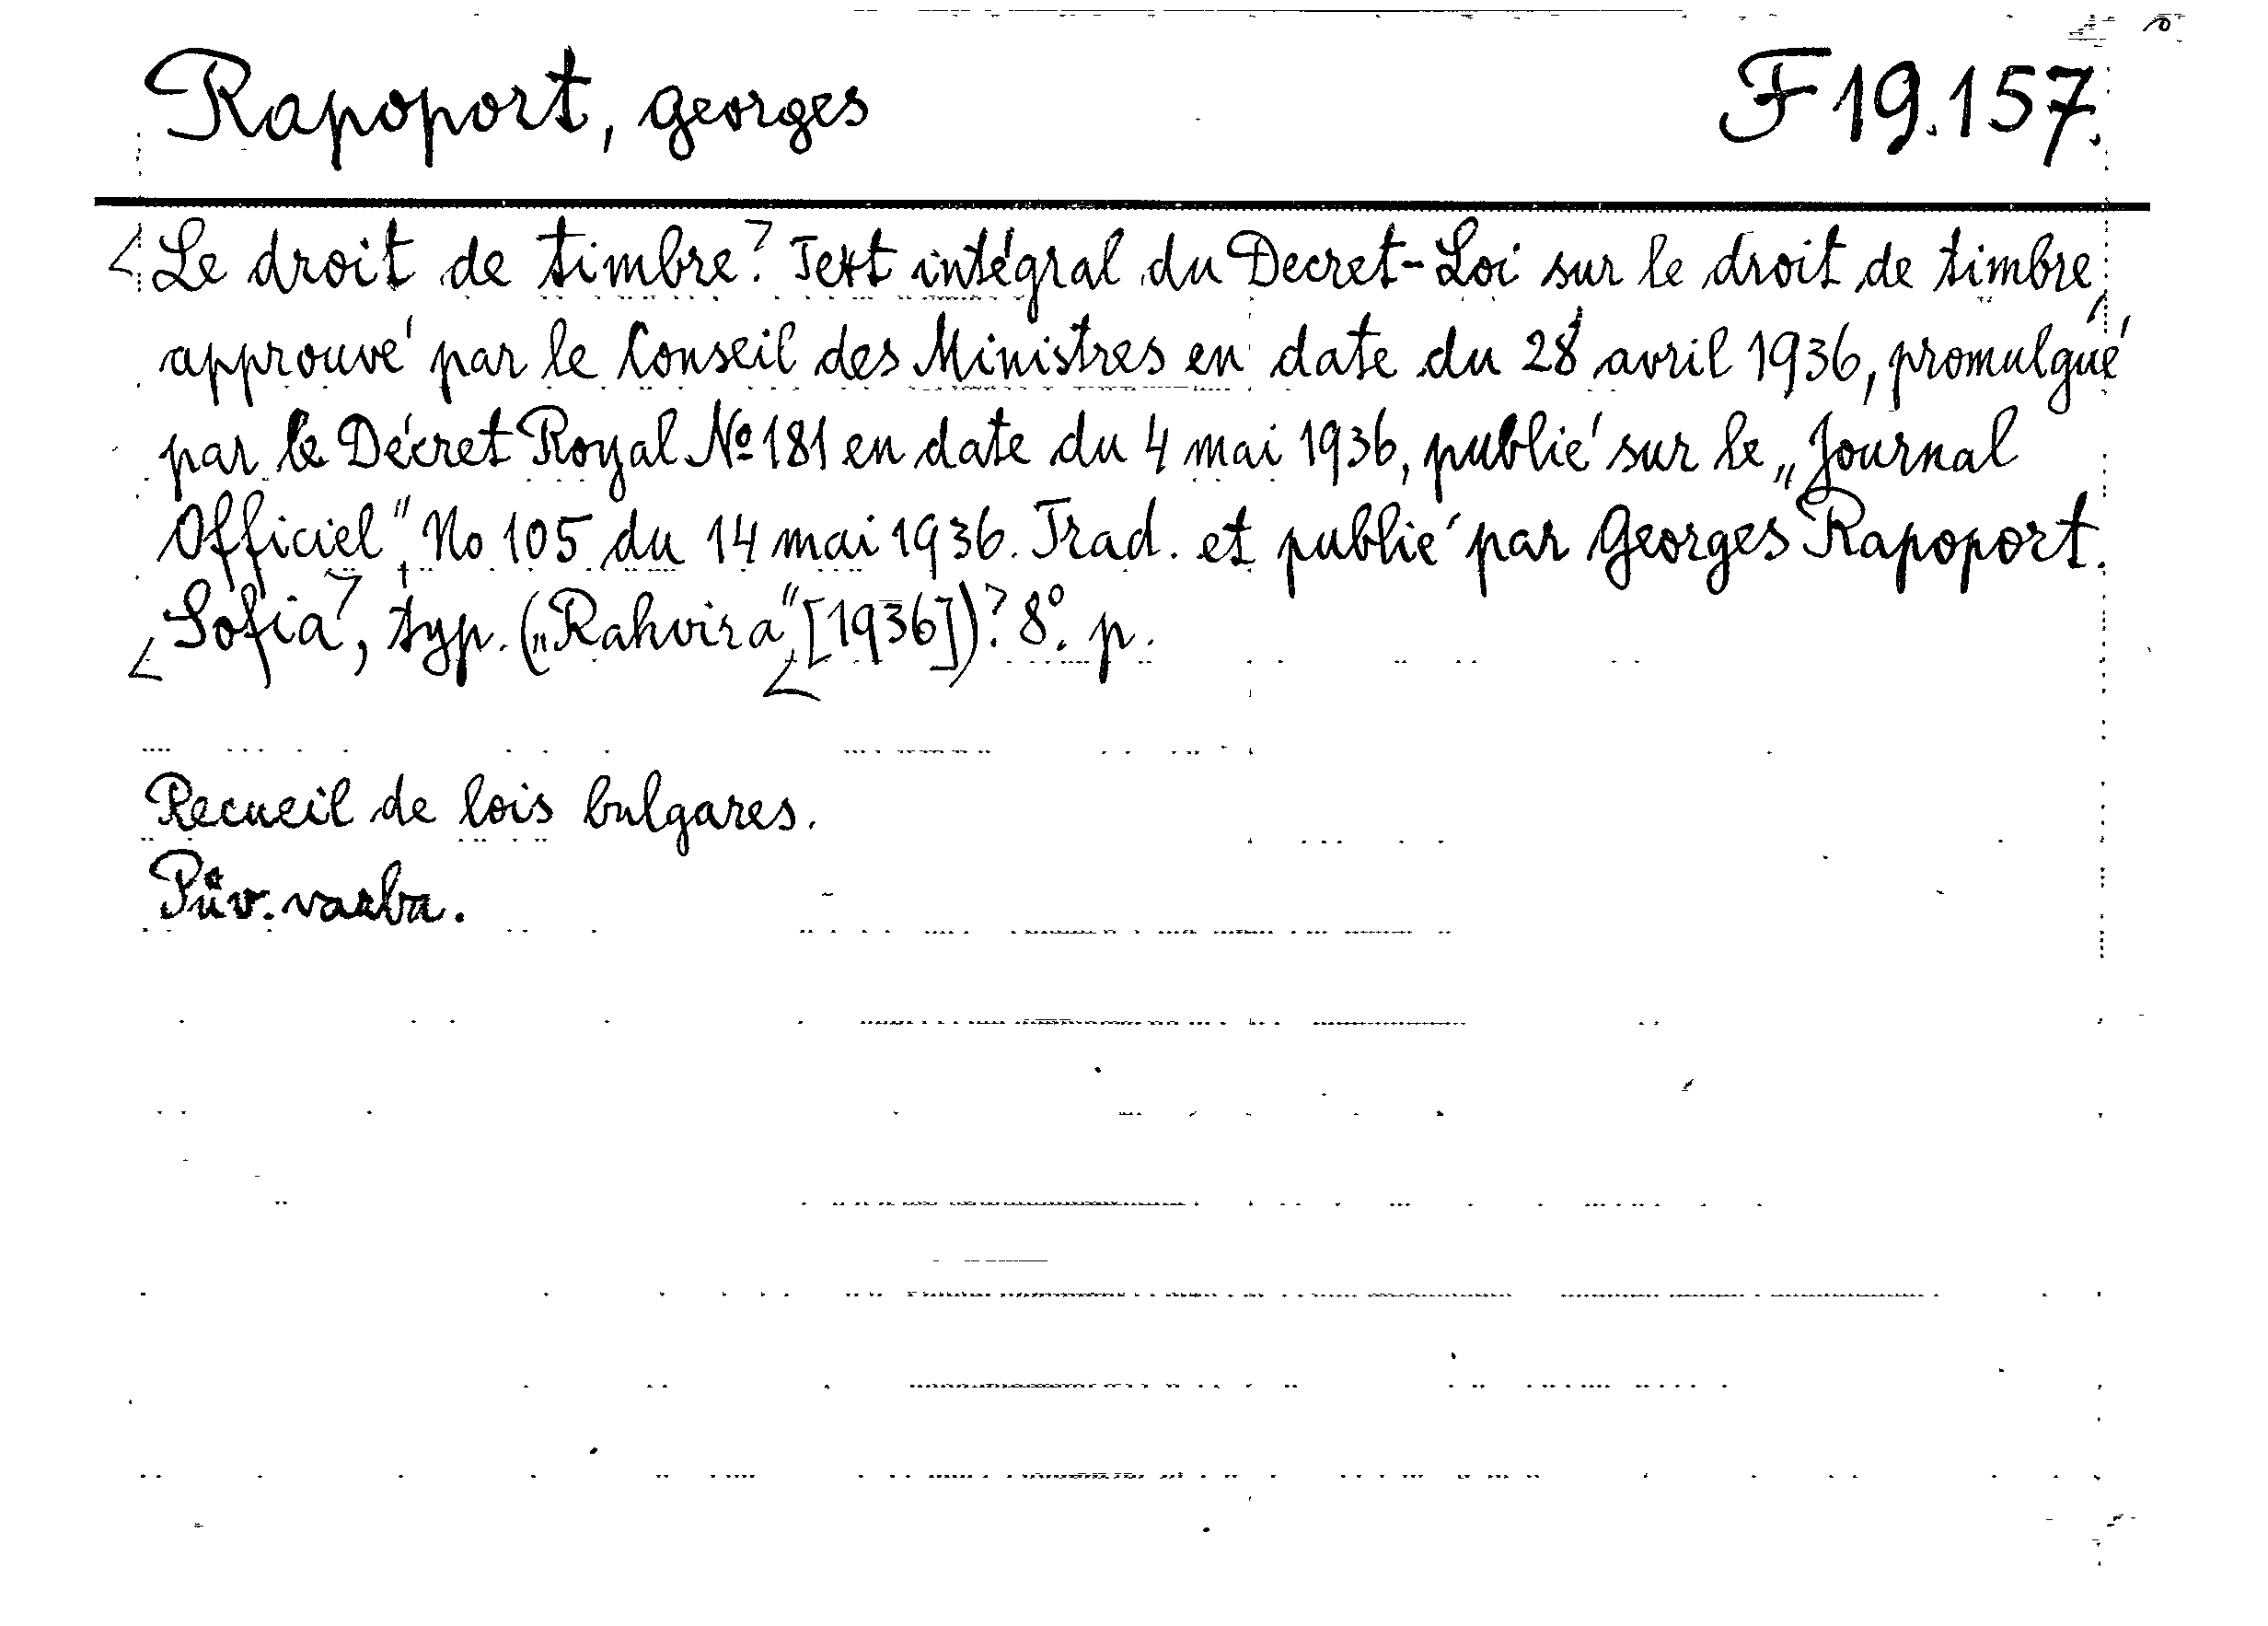 Rapoport, Georges F 19.157.
<Le droit de timbre.> Text intégral du Decret-Loi sur le droit de timbre,
approuvé par le Conseil des Ministres en date du 28 avril 1936, promulgué
par le Décret Royal № 181 en date du 4 mai 1936, publié sur le „Journal
Officiel", No 105 du 14 mai 1936. Trad. et publié par Georges Rapoport.
<Sofia>, typ. („Rahvira",<[1936])>. 8°. p.
Recueil de lois bulgares.
Pův. vazba.